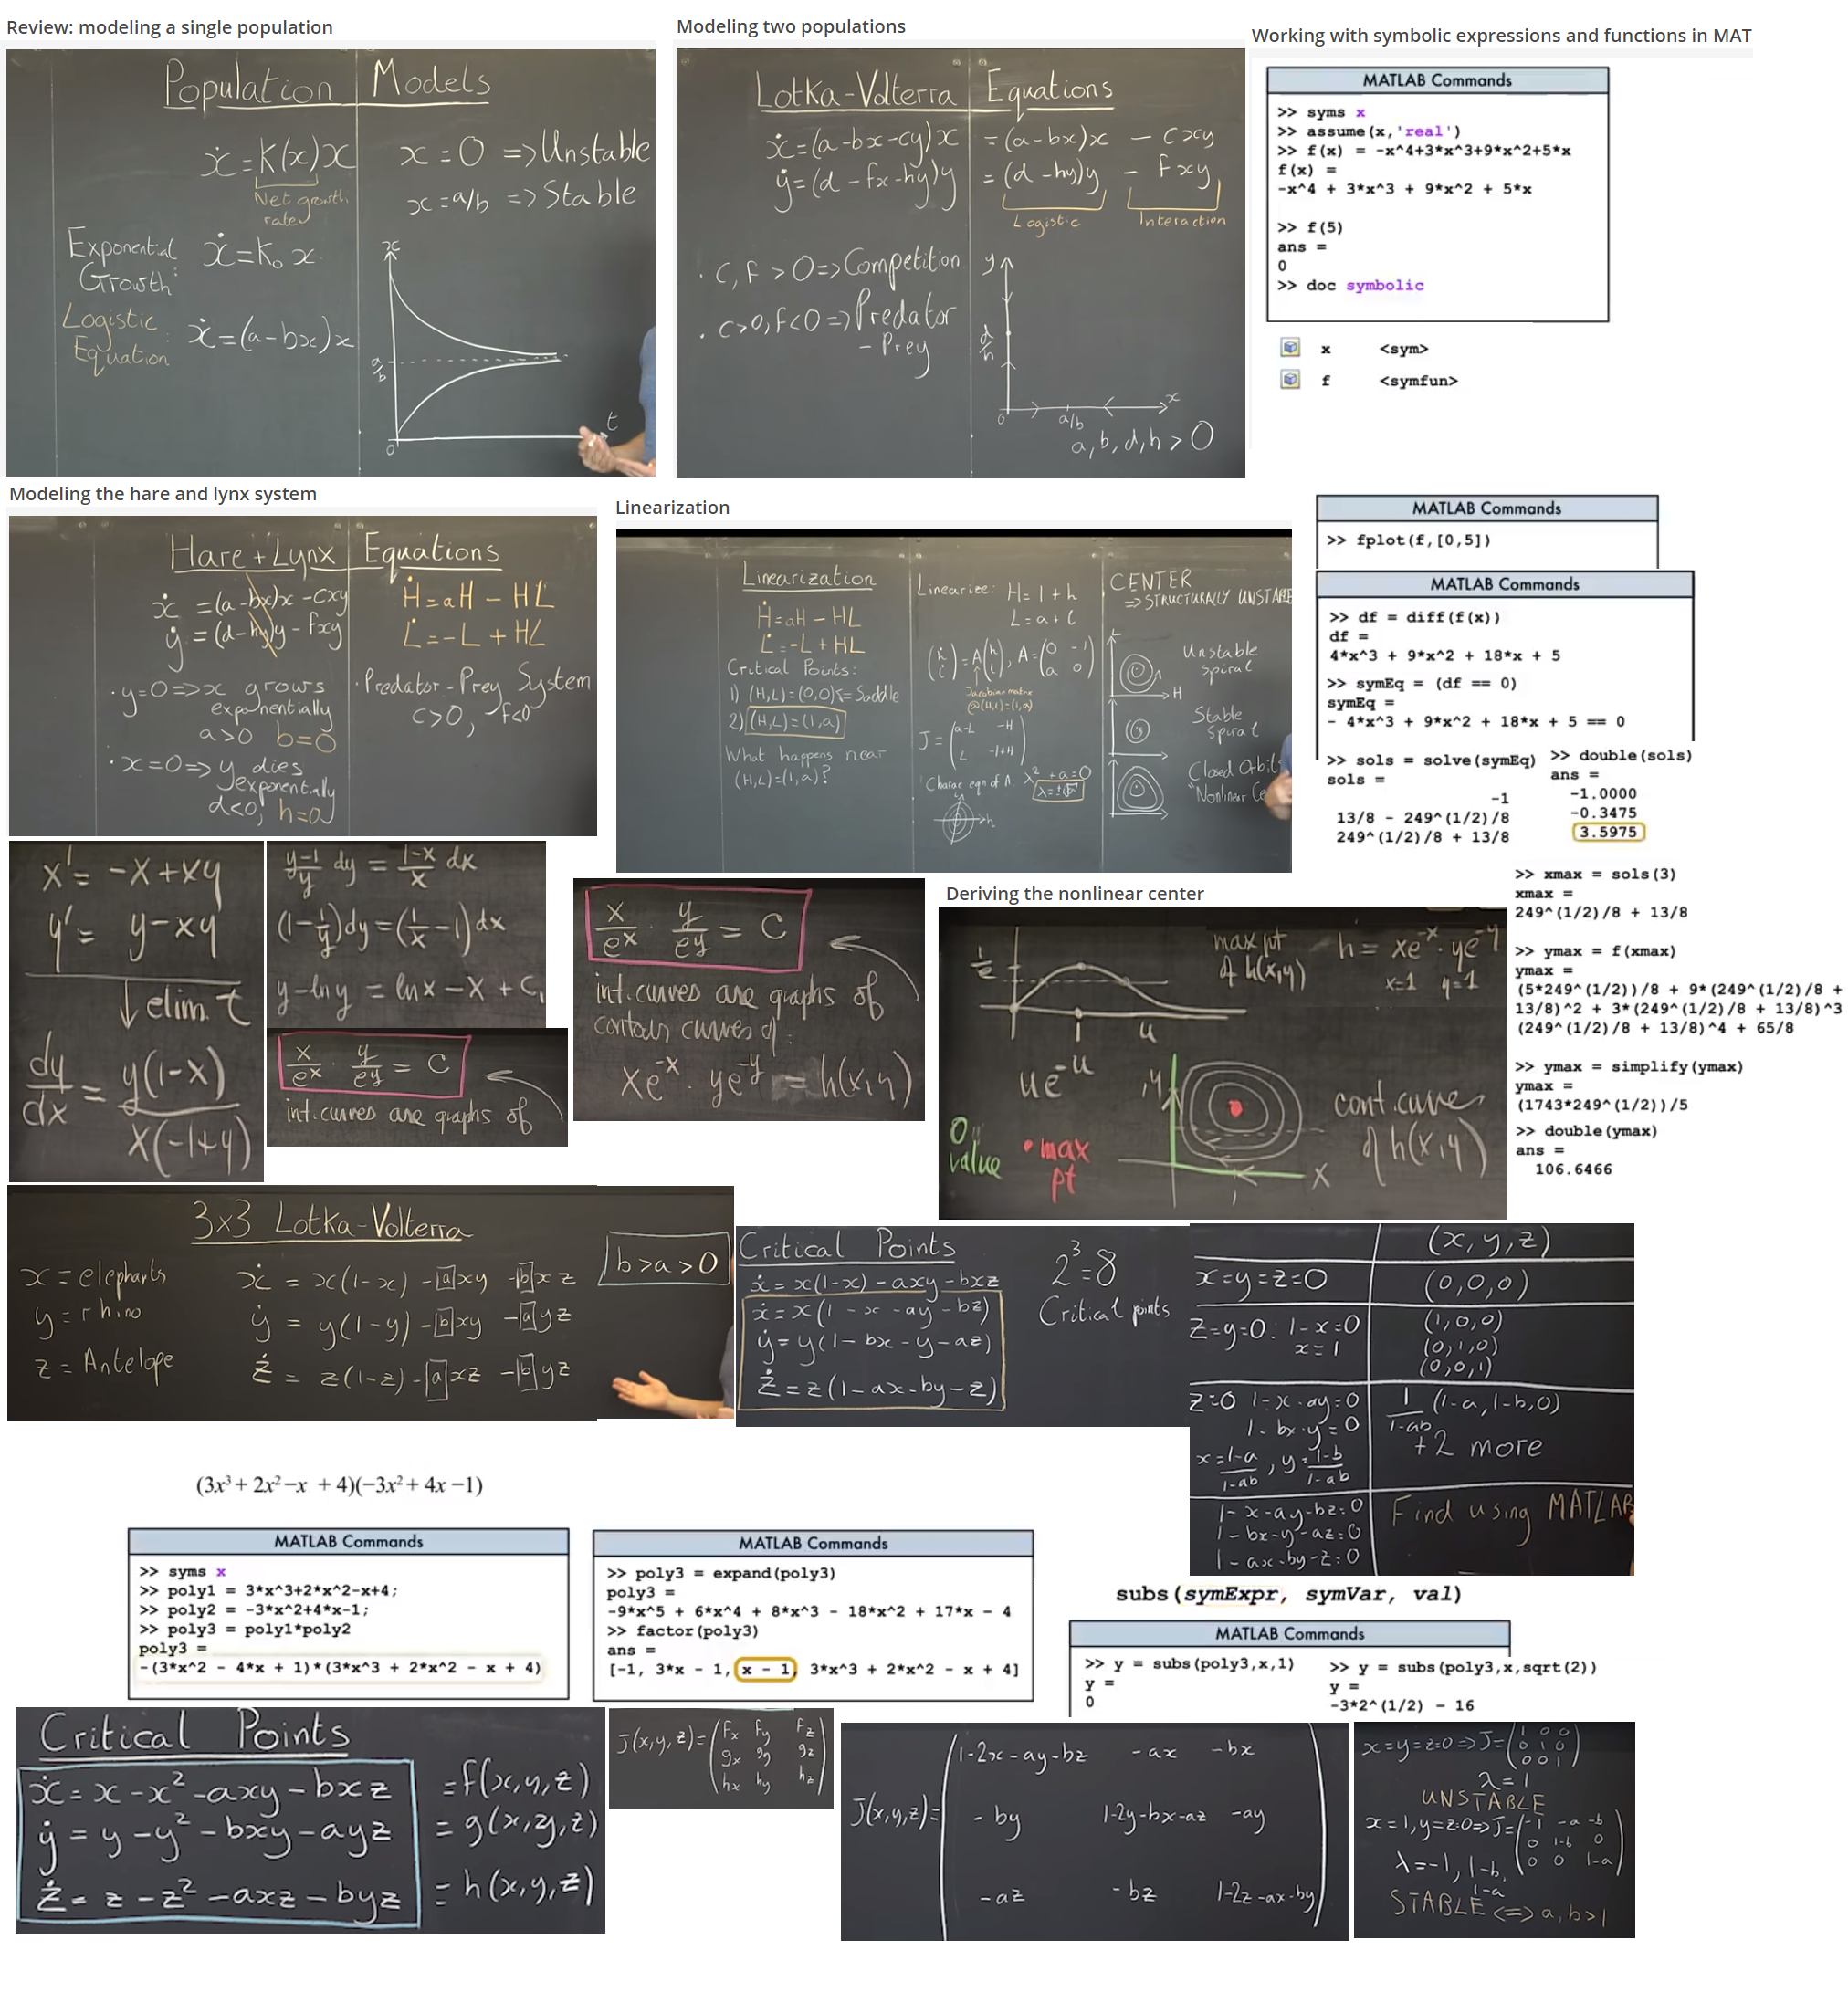 Review: modeling a single population
Population Models
ẋ=K(x)x
Net growth
rate
x=0 => Unstable
x=a/b => Stable
Exponential
Growth:
ẋ=K₀x
Logistic
Equation:
ẋ=(a-bx)x
x
a/b
0
t
Modeling two populations
Lotka-Volterra Equations
ẋ=(a-bx-cy)x =(a-bx)x - cxy
ẏ=(d-fx-hy)y =(d-hy)y - fxy
Logistic
Interaction
· C,F>0=>Competition
· C>0,F<0=>Predator
-Prey
y
d/h
0
a/b
x
a,b,d,h>0
Working with symbolic expressions and functions in MAT
MATLAB Commands
>> syms x
>> assume(x,'real')
>> f(x) = -x^4+3*x^3+9*x^2+5*x
f(x) =
-x^4 + 3*x^3 + 9*x^2 + 5*x
>> f(5)
ans =
0
>> doc symbolic
x <sym>
f <symfun>
Modeling the hare and lynx system
Hare + Lynx Equations
ẋ =(a-bx)x-cxy
ẏ =(d-hy)y-fxy
Ḣ=aH-HL
L̇=-L+HL
· y=0=>x grows
exponentially
a>0 b=0
· x=0=>y dies
exponentially
d<0, h=0
· Predator-Prey System
c>0, f<0
Linearization
Linearization
Ḣ=aH-HL
L̇=-L+HL
Critical Points:
1) (H,L)=(0,0)<= Saddle
2) (H,L)=(1,a)
What happens near
(H,L)=(1,a)?
Linearize: H=1+h
L=a+l
A=(0 -1
a 0)
Jacobian matrix
@(H,L)=(1,a)
J=(a-L -H
L -1+H)
Charac eqn of A: λ²+a=0
CENTER
=> STRUCTURALLY UNSTABLE
H
Unstable
Spiral
Stable
Spiral
Closed Orbit
"Nonlinear Ce
MATLAB Commands
>> fplot(f,[0,5])
MATLAB Commands
>> df = diff(f(x))
df =
4*x^3 + 9*x^2 + 18*x + 5
>> symEq = (df == 0)
symEq =
- 4*x^3 + 9*x^2 + 18*x + 5 == 0
>> sols = solve(symEq)
sols =
-1
13/8 - 249^(1/2)/8
249^(1/2)/8 + 13/8
>> double(sols)
ans =
-1.0000
-0.3475
3.5975
>> xmax = sols(3)
xmax =
249^(1/2)/8 + 13/8
>> ymax = f(xmax)
ymax =
(5*249^(1/2))/8 + 9*(249^(1/2)/8 +
13/8)^2 + 3*(249^(1/2)/8 + 13/8)^3
(249^(1/2)/8 + 13/8)^4 + 65/8
>> ymax = simplify(ymax)
ymax =
(1743*249^(1/2))/5
>> double(ymax)
ans =
106.6466
x' = -x+xy
y' = y-xy
↓ elim. t
dy/dx = y(1-x)/x(-1+y)
y-1/y dy = 1-x/x dx
(1-1/y)dy=(1/x-1)dx
y-ln y = ln x-x+C₁
x/eˣ · y/eʸ = C
int. curves are graphs of
x/eˣ · y/eʸ = C
int. curves are graphs of
contour curves of:
xe⁻ˣ · ye⁻ʸ = h(x,y)
Deriving the nonlinear center
1/e
1
u
ue⁻ᵘ
max pt
of h(x,y)
h = xe⁻ˣ · ye⁻ʸ
x=1 y=1
0
value
• max
pt
y
1
x
cont. curves
of h(x,y)
3x3 Lotka-Volterra
x = elephants
y = rhino
z = Antelope
ẋ = x(1-x) -axy -bxz
ẏ = y(1-y) -bxy -ayz
ż = z(1-z) -axz -byz
b>a>0
Critical Points
ẋ = x(1-x)-axy-bxz
ẋ = x(1-x-ay-bz)
ẏ = y(1-bx-y-az)
ż = z(1-ax-by-z)
2³=8
Critical points
(x,y,z)
x=y=z=0 (0,0,0)
z=y=0: 1-x=0
x=1
(1,0,0)
(0,1,0)
(0,0,1)
z=0 1-x-ay=0
1-bx-y=0
x=1-a/1-ab, y=1-b/1-ab
1/1-ab (1-a,1-b,0)
+2 more
1-x-ay-bz=0
1-bx-y-az=0
1-ax-by-z=0
Find using MATLAB
(3x³ + 2x² – x + 4)(–3x² + 4x –1)
MATLAB Commands
>> syms x
>> poly1 = 3*x^3+2*x^2-x+4;
>> poly2 = -3*x^2+4*x-1;
>> poly3 = poly1*poly2
poly3 =
-(3*x^2 - 4*x + 1)*(3*x^3 + 2*x^2 - x + 4)
MATLAB Commands
>> poly3 = expand(poly3)
poly3 =
-9*x^5 + 6*x^4 + 8*x^3 - 18*x^2 + 17*x - 4
>> factor(poly3)
ans =
[-1, 3*x - 1, x - 1, 3*x^3 + 2*x^2 - x + 4]
subs(symExpr, symVar, val)
MATLAB Commands
>> y = subs(poly3,x,1)
y =
0
>> y = subs(poly3,x,sqrt(2))
y =
-3*2^(1/2) - 16
Critical Points
ẋ = x-x²-axy-bxz =f(x,y,z)
ẏ = y-y²-bxy-ayz =g(x,y,z)
ż = z-z²-axz-byz =h(x,y,z)
J(x,y,z)=(fx fy fz
gx gy gz
hx hy hz)
J(x,y,z)=
1-2x-ay-bz -ax -bx
-by 1-2y-bx-az -ay
-az -bz 1-2z-ax-by
x=y=z=0 => J=(1 0 0
0 1 0
0 0 1)
λ=1
UNSTABLE
x=1,y=z=0=>J=(-1 -a -b
0 1-b 0
0 0 1-a)
λ=-1, 1-b,
1-a
STABLE <=> a,b>1